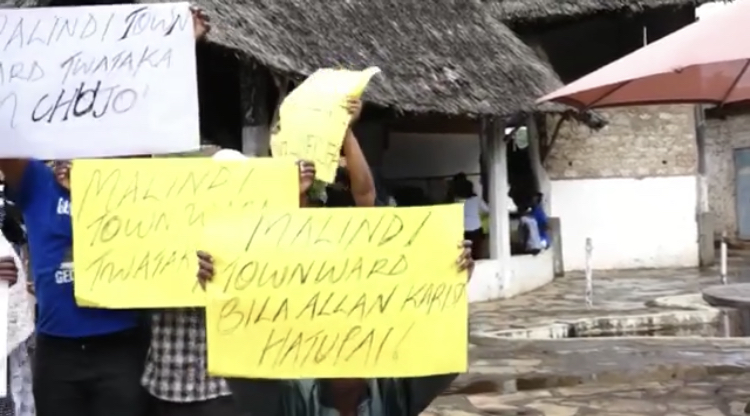 MALINDI TOWN
WARD TWATAKA
CHOJO!
MALINDI
TOWN
TWATAK
MALINDI
TOWNWARD
BILA ALLAN KARISA
HATUPAI!